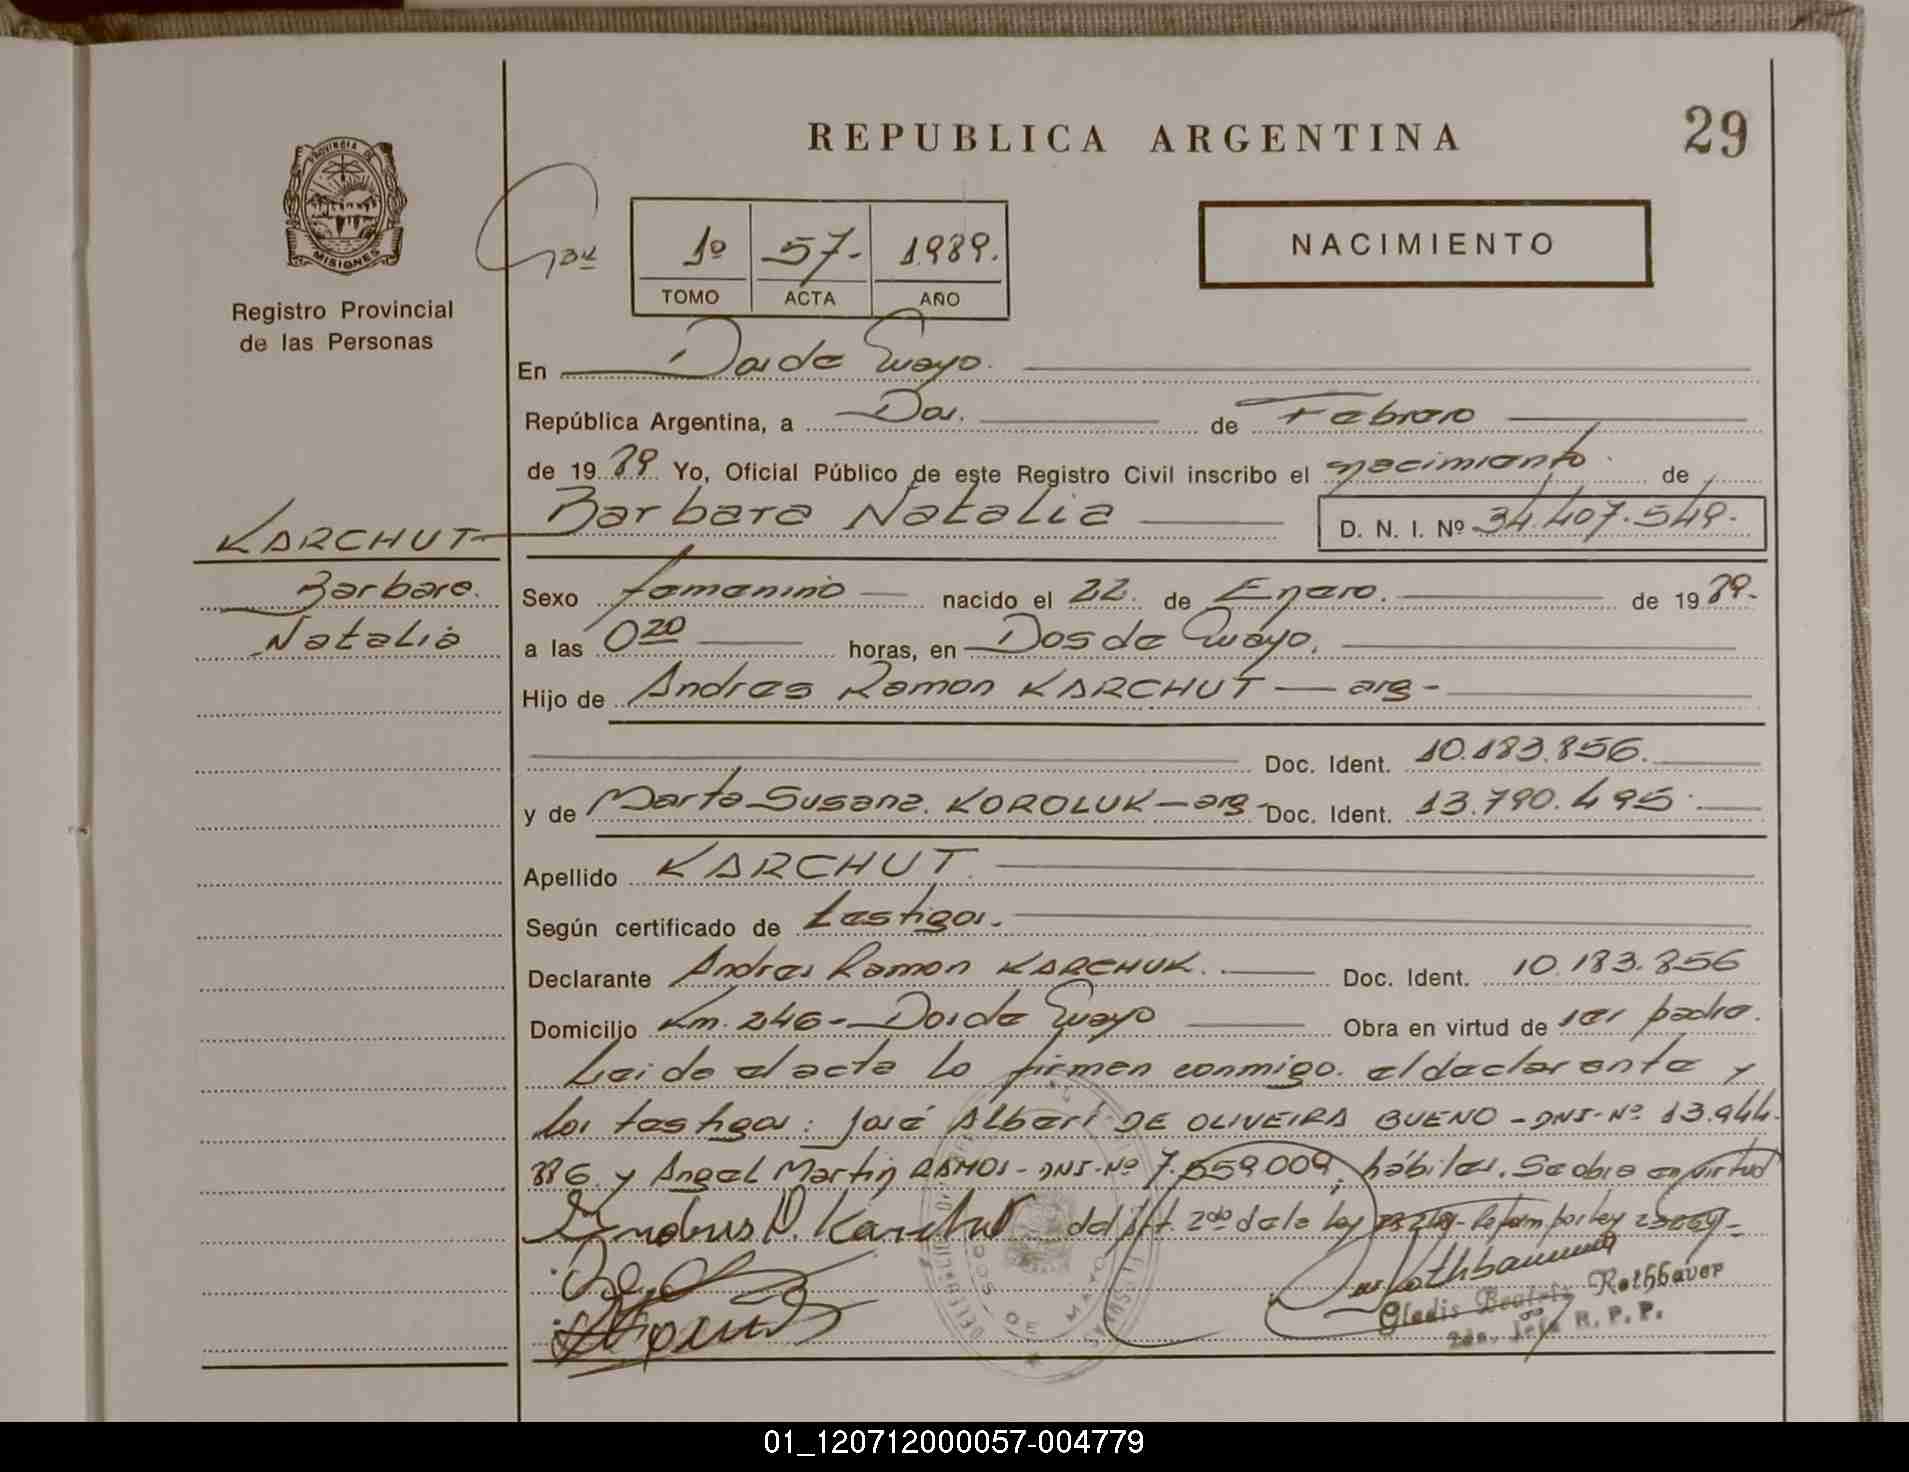 REPUBLICA ARGENTINA
29
PROVINCIA DE
MISIONES
Registro Provincial
de las Personas
1º 57- 1989.
TOMO ACTA AÑO
NACIMIENTO
En Dos de Mayo.
República Argentina, a Dos. de Febrero
de 1989 Yo, Oficial Público de este Registro Civil inscribo el nacimiento de
Barbara Natalia D. N. I. Nº 34.407.549-
KARCHUT
Barbara
Natalia
Sexo femenino nacido el 22. de Enero. de 1989-
a las 0 20 horas, en Dos de Mayo.
Hijo de Andres Ramon KARCHUT — arg-
Doc. Ident. 10.183.856.
y de Marta Susana. KOROLUK — arg- Doc. Ident. 13.790.495
Apellido KARCHUT
Según certificado de testigos.
Declarante Andres Ramon KARCHUK. Doc. Ident. 10.183.856
Domicilio Km. 246- Dos de Mayo Obra en virtud de ser padre.
Leido el acta lo firman conmigo. el declarante y
los testigos: José Alberí DE OLIVEIRA BUENO - DNI-Nº 13.944.
886. y Angel Martin RAMOS- DNI-Nº 7.559.009, hábiles. Se obra en virtud
del Art. 2do de la ley Reform por ley
DOS DE MAYO
MISIONES
Gladis Beatriz Rothbaver
2da. Jefa R. P. P.
01_120712000057-004779